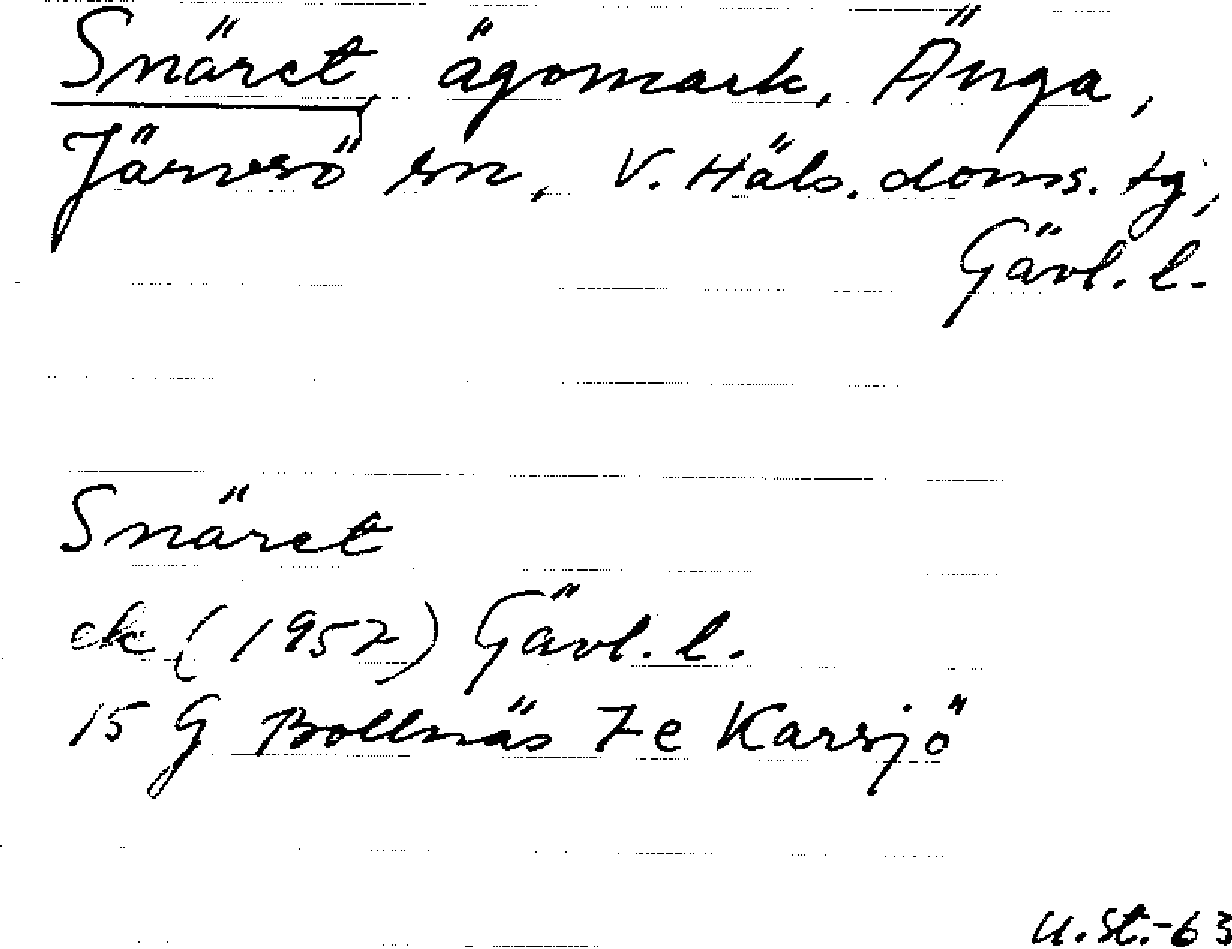 Snäret, ägomark, Änga,
Järvsö sn, V. Häls. doms. tg,
Gävl. l.
Snäret
ek (1957) Gävl. l.
15 G Bollnäs 7e Karsjö
U. St.-63